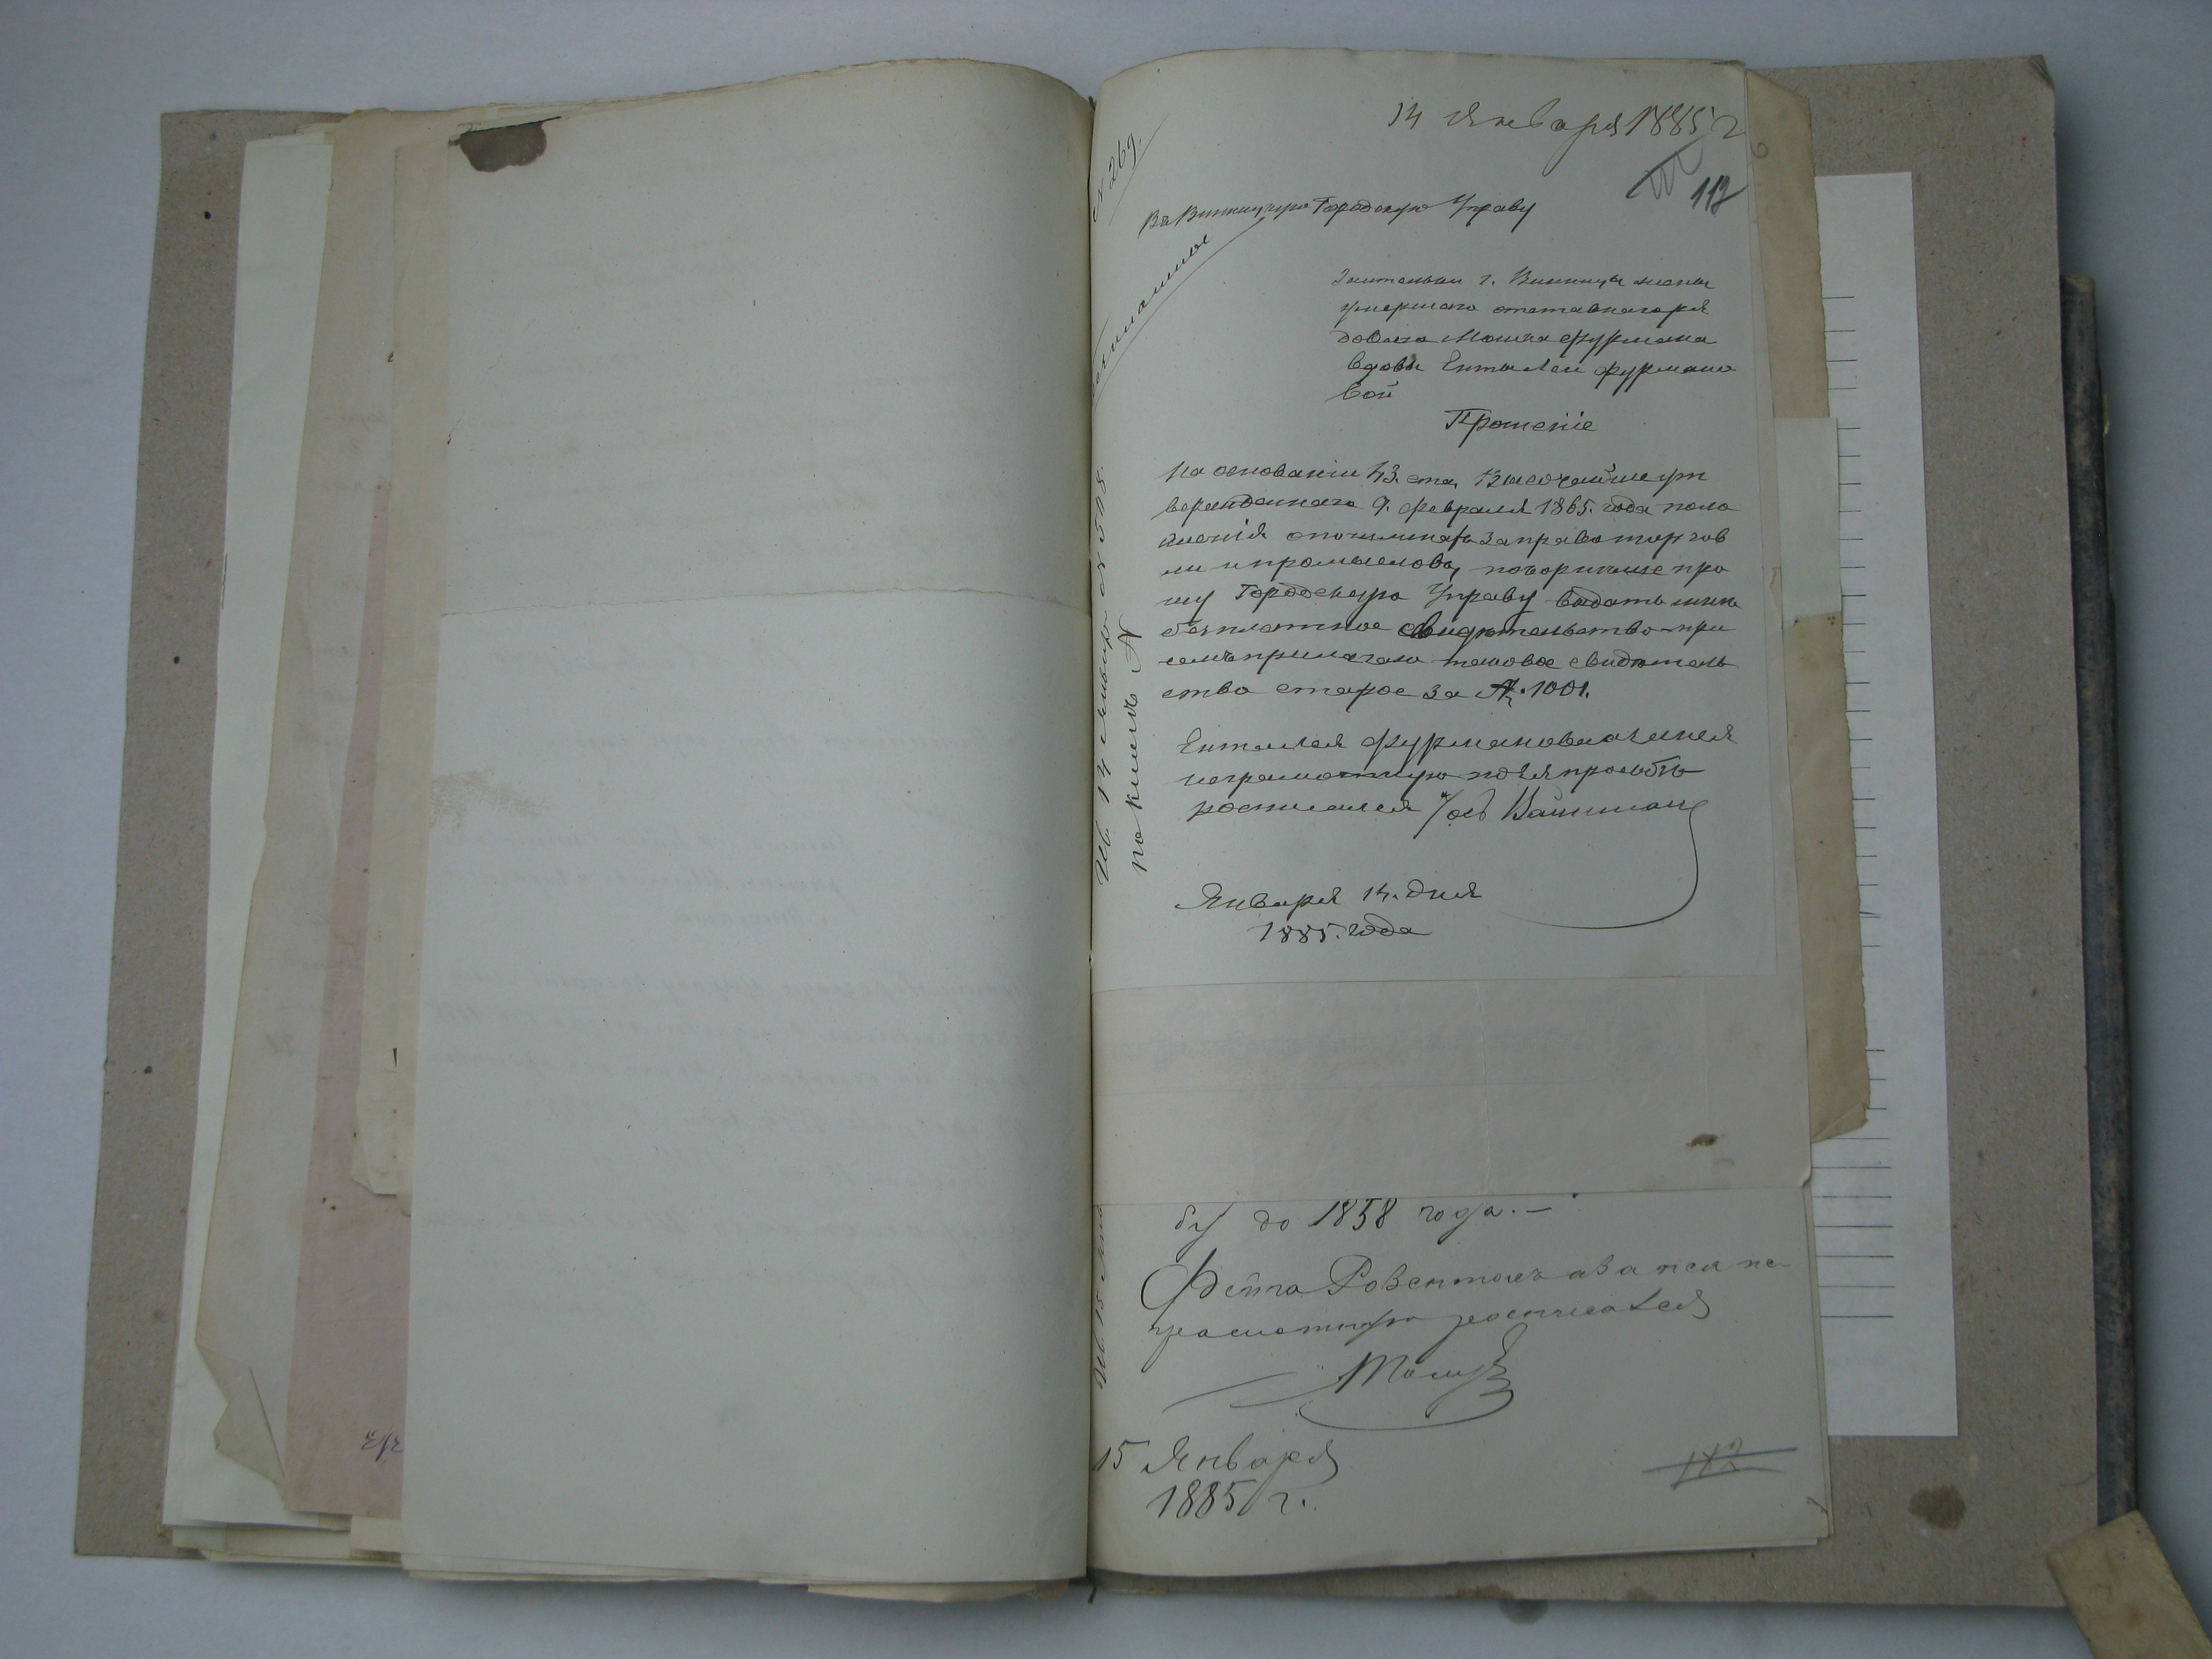 14 Января 1885 г
112
№ 269.
Въ Винницкую Городскую Управу
Жительки г. Винницы жены
умершаго отставнаго ря
дового Мошка Фурмана
вдовы Ентылеи Фурмано
вой
Прошеніе
На основаніи 43. ста, Высочайше ут
вержденнаго 9. Февраля 1865. года поло
женія о пошлинахъ за право торгов
ли и промысловъ, покорнѣйше про
шу Городскую Управу выдать мнѣ
безплатное свидѣтельство при
семъ прилагаю таковое свидѣтель
ство старое за № 1001.
Ентылея Фурманова а за нея
неграмотную по ея просьбѣ
росписался Іос Вайнман
Января 14. дня
1885. года
бу до 1858 года. —
Фейга а за нея не-
грамотную росписался
15 Января
1885 г.
112